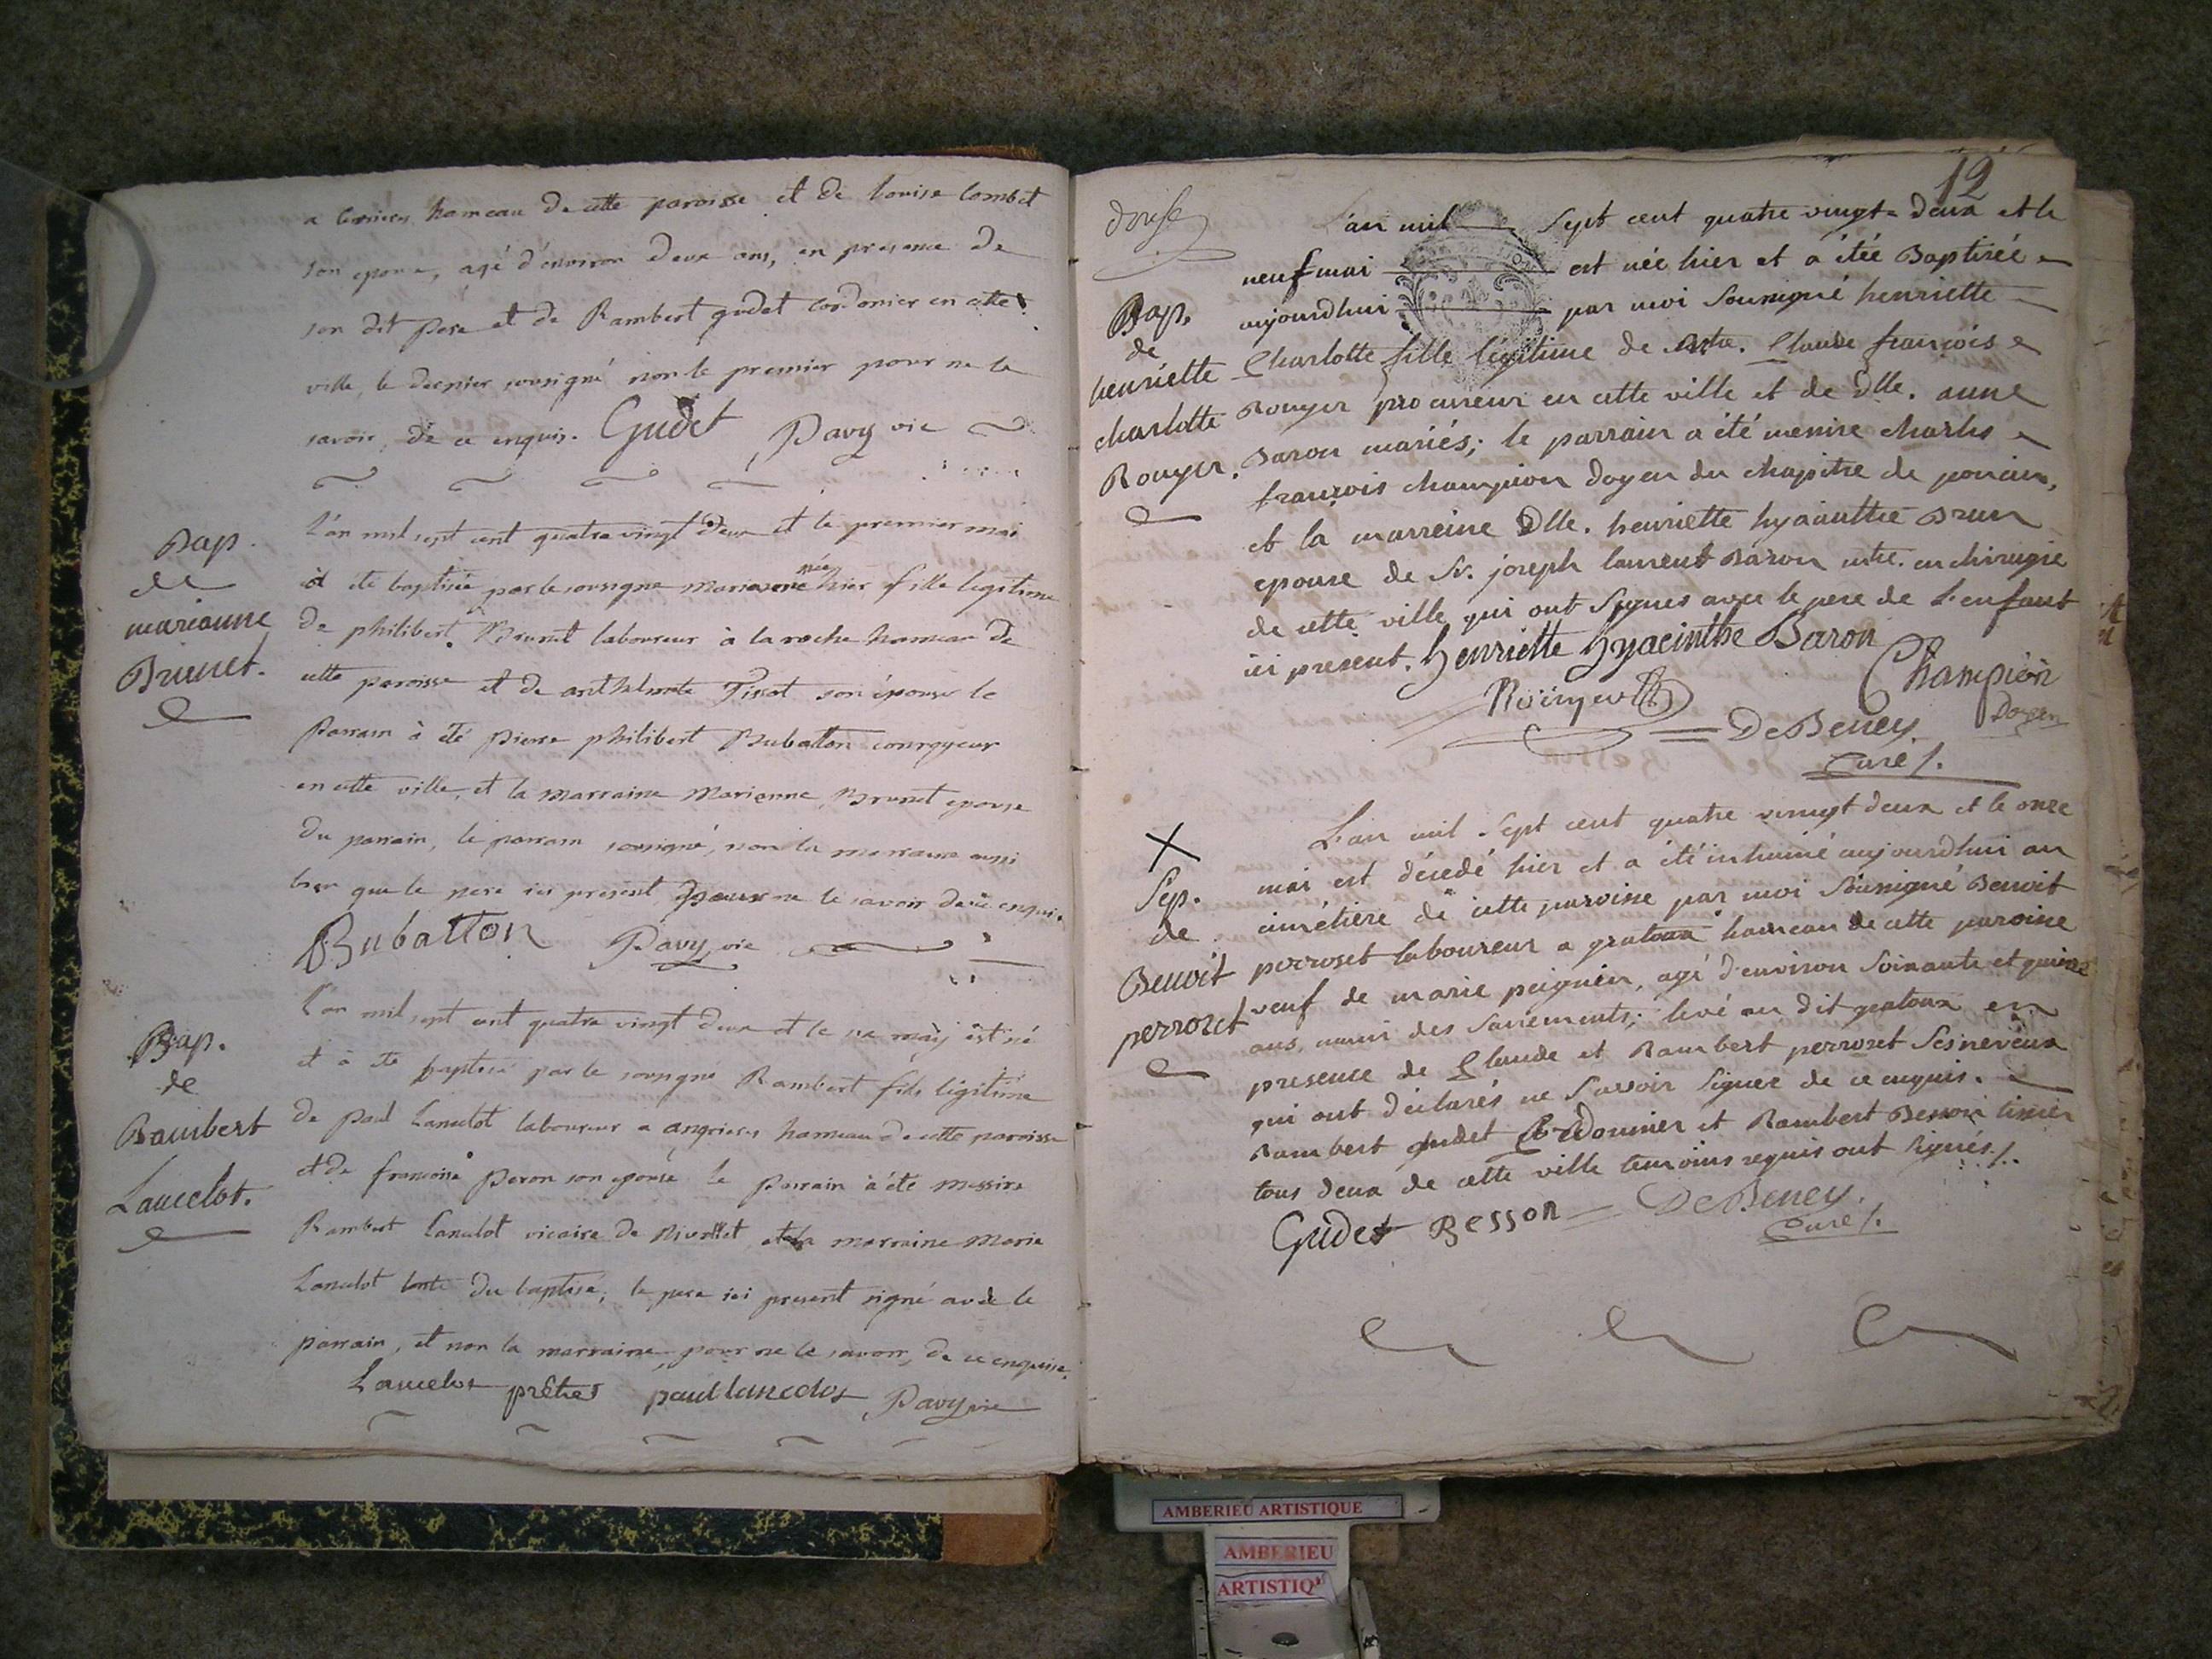 a hameau de cette paroisse et de louise Combet
son epouse, agé d'environ deux ans, en presence de
son dit pere et de Rambert gudet cordonier en cette
ville, le dernier sousigné non le premier pour ne le
savoir, de ce enquis. Gudet Pavy vic
Bap.
de
marianne
Brunet.
L'an mil sept cent quatre vingt deux et le premier mai
a été baptisée par le sousigné marianne née hier fille legitime
de philibert Brunet laboureur à la roche hameau de
cette paroisse et de anthelmette Tissot son épouse le
Parrain à été pierre philibert Bubatton courroyeur
en cette ville, et la marraine marianne Brunet epouse
du parrain, le parrain sousigné, non la marraine aussi
bien que le pere ici present pour ne le savoir de ce enquis.
Bubatton Pavy vic
Bap.
de
Rambert
Lancelot.
L'an mil sept cent quatre vingt deux et le mai est né
et a été baptisé par le sousigné Rambert fils légitime
de paul Lancelot laboureur a angrieres hameau de cette paroisse
et de francoise peron son epouse le parrain à été messire
Rambert Lancelot vicaire de et la marraine marie
Lancelot tante du baptisé, le pere ici present signé avec le
parrain, et non la marraine, pour ne le savoir, de ce enquise.
Lancelot prêtre paul lancelot Pavy vic
12
douse
Bap.
de
henriette
charlotte
Rouyer.
L'an mil sept cent quatre vingt-deux et le
neuf mai est née hier et a étée Baptisée
aujourdhui par moi Soussigné henriette
Charlotte fille légitime de Mtre. Claude françois
Rouyer procureur en cette ville et de Dlle. anne
Baron mariés; le parrain a été messire charles
françois champion doyen du chapitre de poncin,
et la marreine Dlle. henriette hyacinthe Brun
epouse de Sr. joseph laurent Baron mtre. en chirugie
de cette ville qui ont signés avec le pere de l'enfant
ici present. henriette hyacinthe Baron
Champion
Doyen
Rouyer
DeBeney
Curé /.
X
Sep.
de
Benoit
perroset
L'an mil Sept cent quatre vingt deux et le onze
mai est décedé hier et a été inhumé aujourdhui au
cimétiere de cette paroisse par moi Soussigné Benoit
perroset laboureur a gratoux hameau de cette paroisse
veuf de marie peignier, agé d'environ Soixante et quinze
ans, muni des Sacrements; levé au dit gratoux en
presence de Claude et Rambert perroset Ses neveux
qui ont déclarés ne Savoir Signer de ce enquis.
Rambert gudet Cordonnier et Rambert Besson tissier
tous deux de cette ville temoins requis ont signés /.
Gudet Besson DeBeney.
Curé /.
AMBERIEU ARTISTIQUE
AMBERIEU
ARTISTIQ